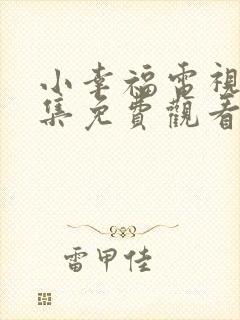 小幸福電視
集免費觀看
雷甲佳